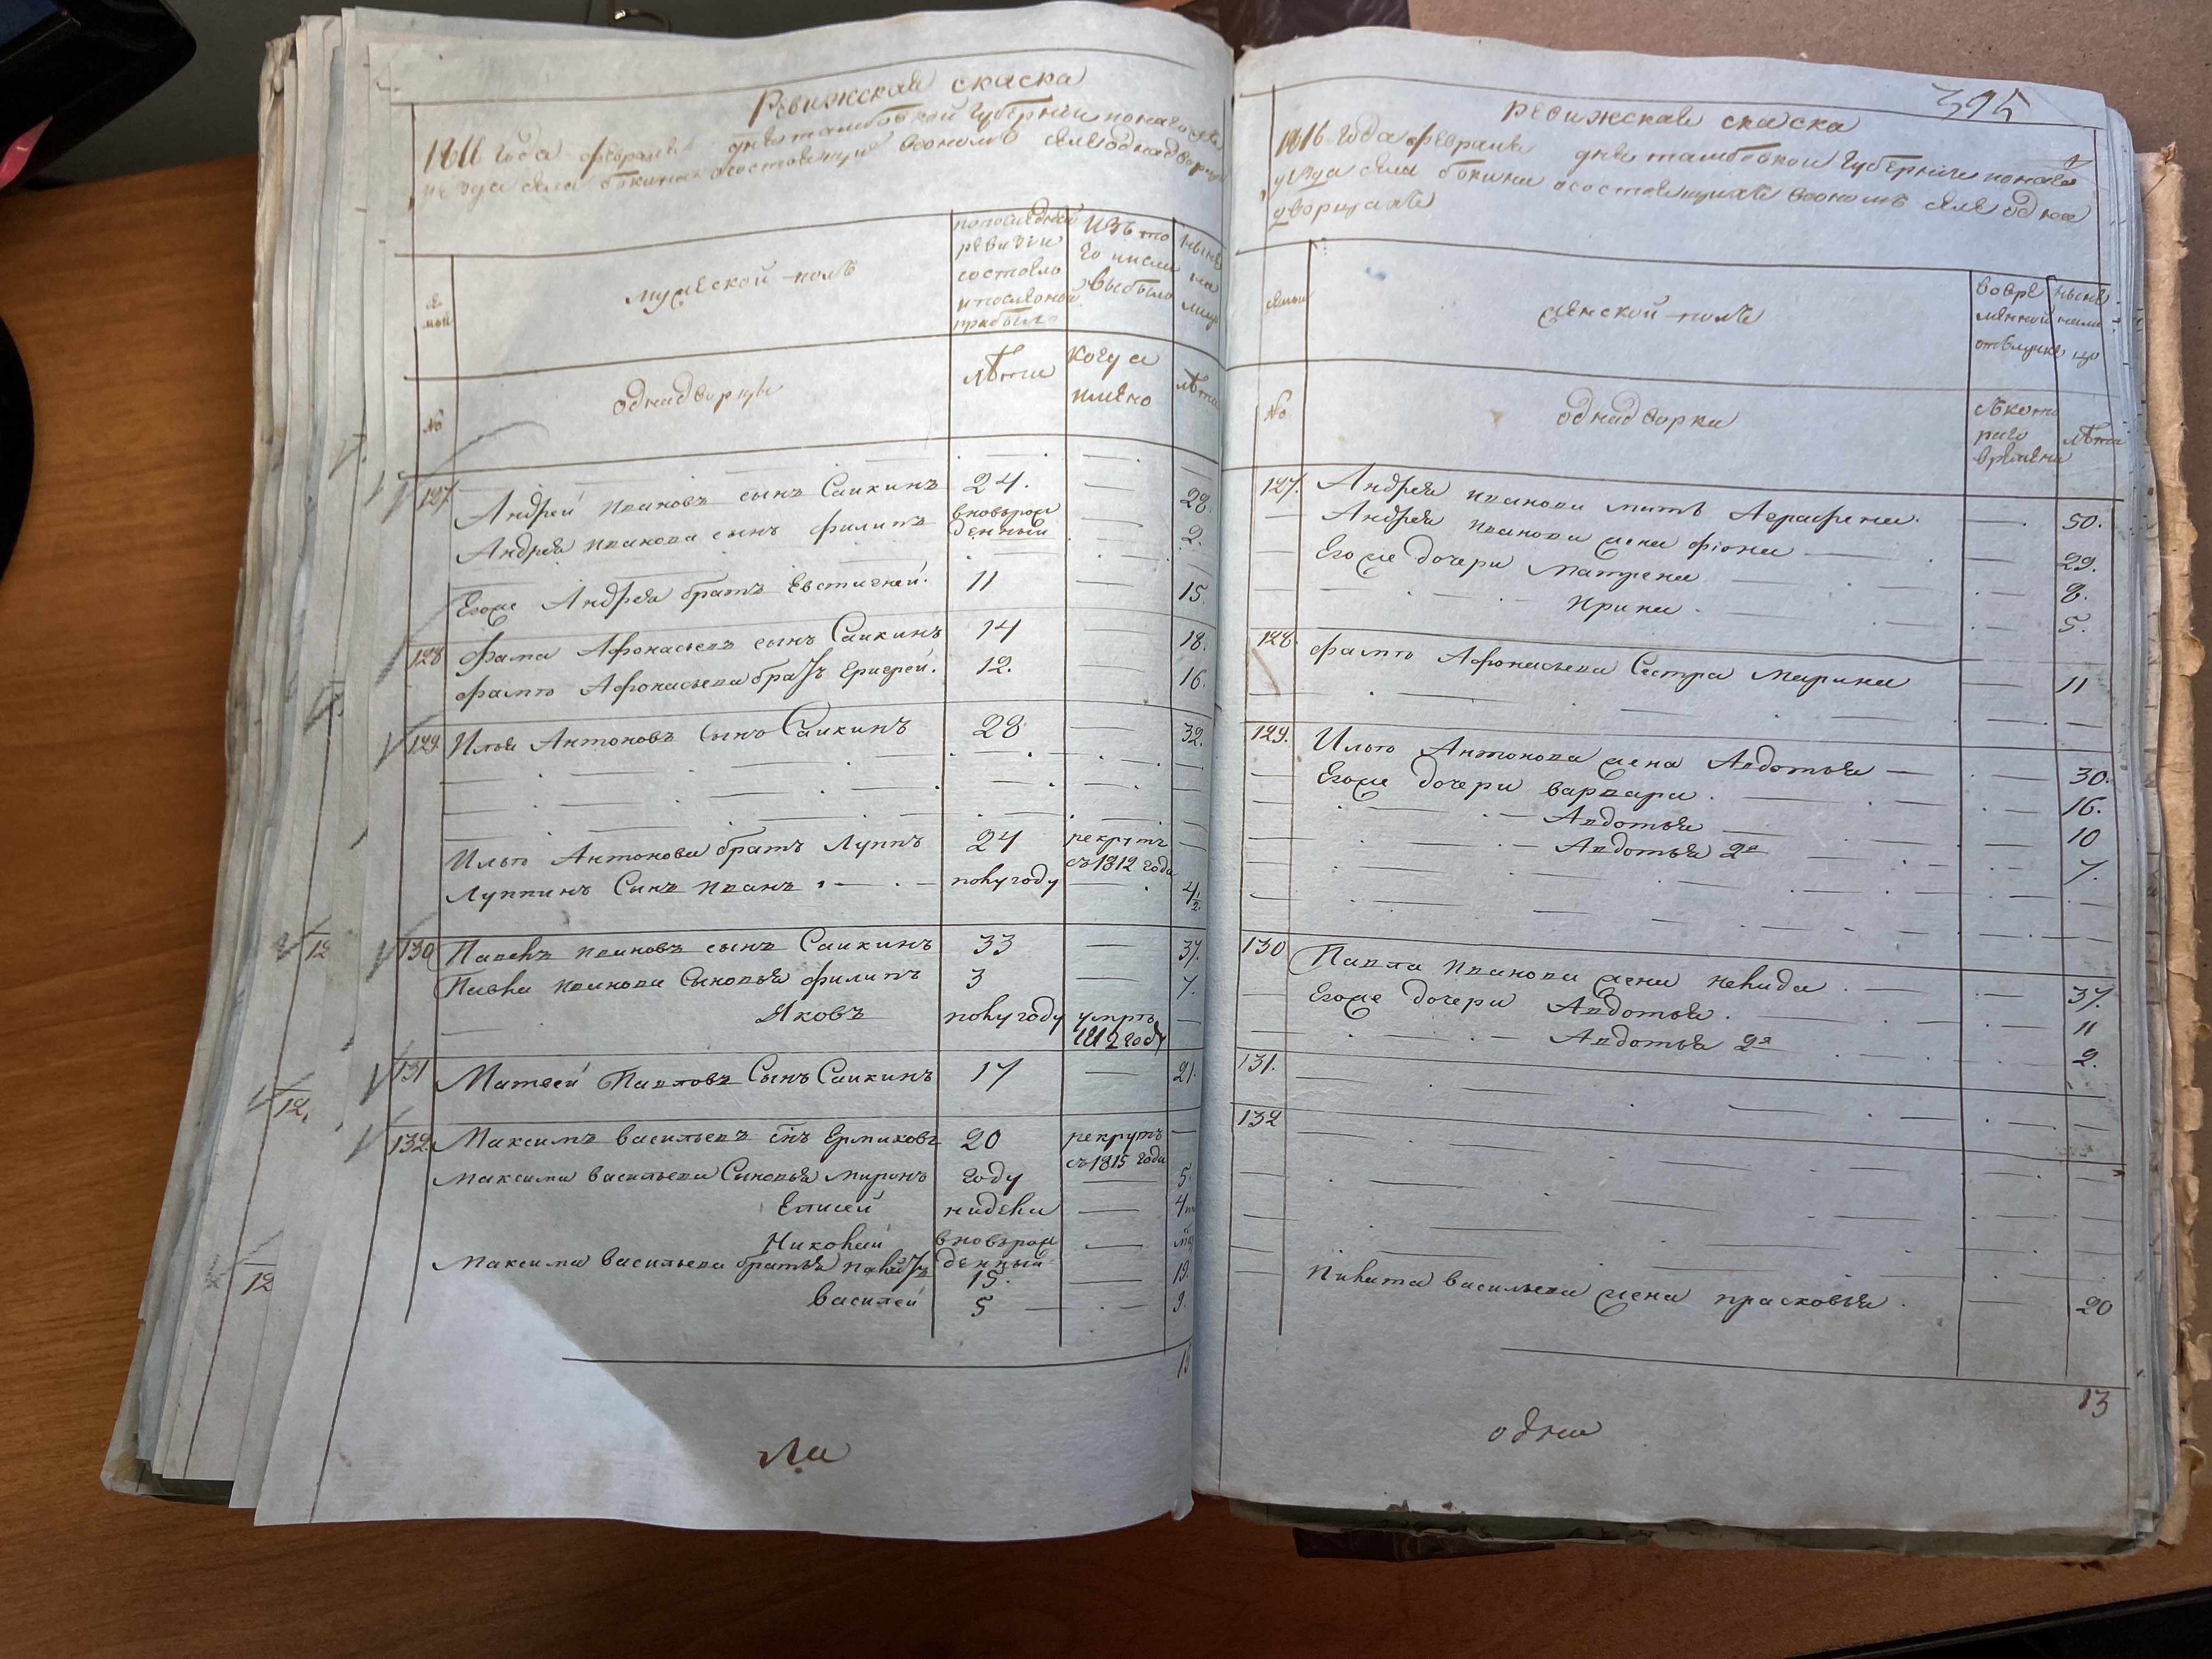 Ревижская скаска
1816 года февраля дня тамбовской губернии
уезда села бокина осостоящихъ воономъ селе однадворцахъ
се
мьи
мужеской полъ
попоследней
ревизии
состояло
ипослеоной
прибыло
Изъ то
го числа
выбыло
ныне
на
лицо
№
однадворцы
лѣта
когда
имяно
лѣта
127 Андрей Ивановъ сынъ Саикинъ 24. — 28.
Андрея Иванова сынъ филипъ вновьрож
денный — 2.
Егоже Андрея братъ Евстигней. 11 — 15.
128 Фама Афонасьевъ сынъ Саикинъ 14 — 18.
Фамы Афонасьева братъ Еригрей. 12. — 16.
129 Илья Антоновъ Сынъ Саикинъ 28 — 32.
Ильи Антонова братъ Луппъ 24 рекрутъ
съ1812 года
Луппинъ Сынъ Иванъ полугоду — 4½.
130 Павелъ Ивановъ сынъ Саикинъ 33 — 37.
Павла Иванова Сыновья филипъ 3 — 7.
Яковъ полугоду умрть
1812 году
131 Матвей Павловъ Сынъ Саикинъ 17 — 21.
132. Максимъ васильевъ снъ Ермаковъ 20 рекрутъ —
съ1815 года
Максима васильева Сыновья миронъ году — 5.
Елисей нидели —
Николай вновьрож
денный —
Максима васильева братья 15. — 19.
василей 5 — 9.
12
12.
12
ли
395
ревижская скаска
1816 года февраля дня тамбовской губернии
уезда села бокина осостоящихъ воономъ селе одна
дворцахъ
семьи
женской полъ
вовре
менной
отлучке
ныне
нали
цо
№
однадворки
съкото
раго
времени
лѣта
127. Андрея Иванова мать Аграфена. — 50.
Андрея Иванова жена фіона — 29.
Егоже дочери Матрена 8.
Ирина. 5.
128. Фамы Афонасьева Сестра Марина — 11
129. Ильи Антонова жена Авдотья — 30.
Егоже дочери варвара. 16.
Авдотья 10
Авдотья 2я 7.
130 Павла Иванова жена 37.
Егоже дочери Авдотья. 11
Авдотья 2я 2.
131.
132
Никита васильева жена прасковья. — 20
13
одна